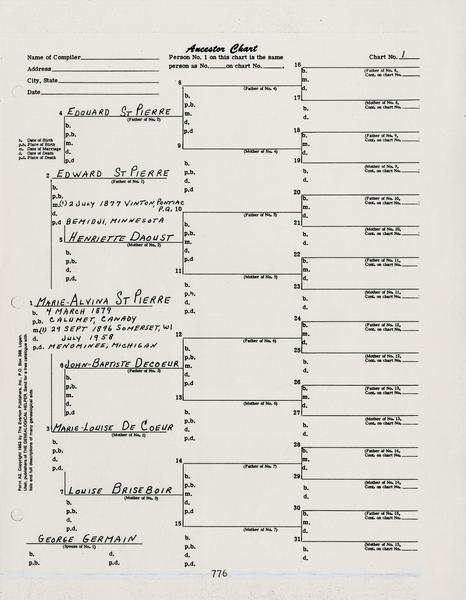 Ancestor Chart
Name of Compiler
Person No. 1 on this chart is the same
Chart No. 1
Address
person as No. on chart No.
City, State
Date
16
b. (Father of No. 8,
m. Cont. on chart No.
d.
8
b. (Father of No. 4)
p.b.
m.
d.
p.d.
17
b. (Mother of No. 8,
d. Cont. on chart No.
4 EDOUARD ST PIERRE
(Father of No. 2)
b.
p.b.
m.
d.
p.d
b. Date of Birth
p.b. Place of Birth
m. Date of Marriage
d. Date of Death
p.d. Place of Death
18
b. (Father of No. 9,
m. Cont. on chart No.
d.
9
b. (Mother of No. 4)
p.b.
d.
p.d.
19
b. (Mother of No. 9,
d. Cont. on chart No.
2 EDWARD ST PIERRE
(Father of No. 1)
b.
p.b.
m.(1) 2 JULY 1877 VINTON, PONTIAC
P.Q.
d.
p.d BEMIDJI, MINNESOTA
20
b. (Father of No. 10,
m. Cont. on chart No.
d.
10
b. (Father of No. 5)
p.b.
m.
d.
p.d.
21
b. (Mother of No. 10,
d. Cont. on chart No.
5 HENRIETTE DAOUST
(Mother of No. 2)
b.
p.b.
d.
p.d.
22
b. (Father of No. 11,
m. Cont. on chart No.
d.
11
b. (Mother of No. 5)
p.b.
d.
p.d.
23
b. (Mother of No. 11,
d. Cont. on chart No.
1 MARIE-ALVINA ST PIERRE
b. 4 MARCH 1879
p.b. CALUMET, CANADY
m.(1) 29 SEPT 1896 SOMERSET, WI
d. JULY 1958
p.d. MENOMINEE, MICHIGAN
24
b. (Father of No. 12,
m. Cont. on chart No.
d.
12
b. (Father of No. 6)
p.b.
m.
d.
p.d.
25
b. (Mother of No. 12,
d. Cont. on chart No.
6 JOHN-BAPTISTE DECOEUR
(Father of No. 3)
b.
p.b.
m.
d.
p.d.
26
b. (Father of No. 13,
m. Cont. on chart No.
d.
13
b. (Mother of No. 6)
p.b.
d.
p.d.
27
b. (Mother of No. 13,
d. Cont. on chart No.
3 MARIE-LOUISE DE COEUR
(Mother of No. 1)
b.
p.b.
d.
p.d.
28
b. (Father of No. 14,
m. Cont. on chart No.
d.
14
b. (Father of No. 7)
p.b.
m.
d.
p.d.
29
b. (Mother of No. 14,
d. Cont. on chart No.
7 LOUISE BRISEBOIR
(Mother of No. 3)
b.
p.b.
d.
p.d.
30
b. (Father of No. 15,
m. Cont. on chart No.
d.
15
b. (Mother of No. 7)
p.b.
d.
p.d.
31
b. (Mother of No. 15,
d. Cont. on chart No.
GEORGE GERMAIN
(Spouse of No. 1)
b. d.
p.b. p.d.
Form A2. Copyright 1963 by The Everton Publishers, Inc. P.O. Box 368, Logan,
Utah, publishers of THE GENEALOGICAL HELPER. Send for a free catalogue with
lists and full descriptions of many genealogical aids.
776